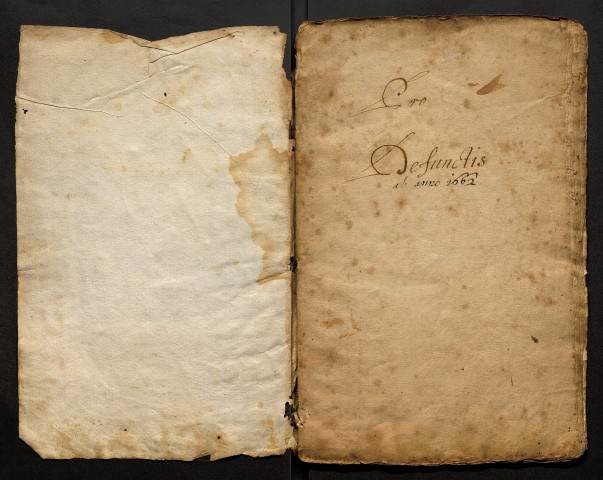 Pro
Defunctis
ab anno 1662